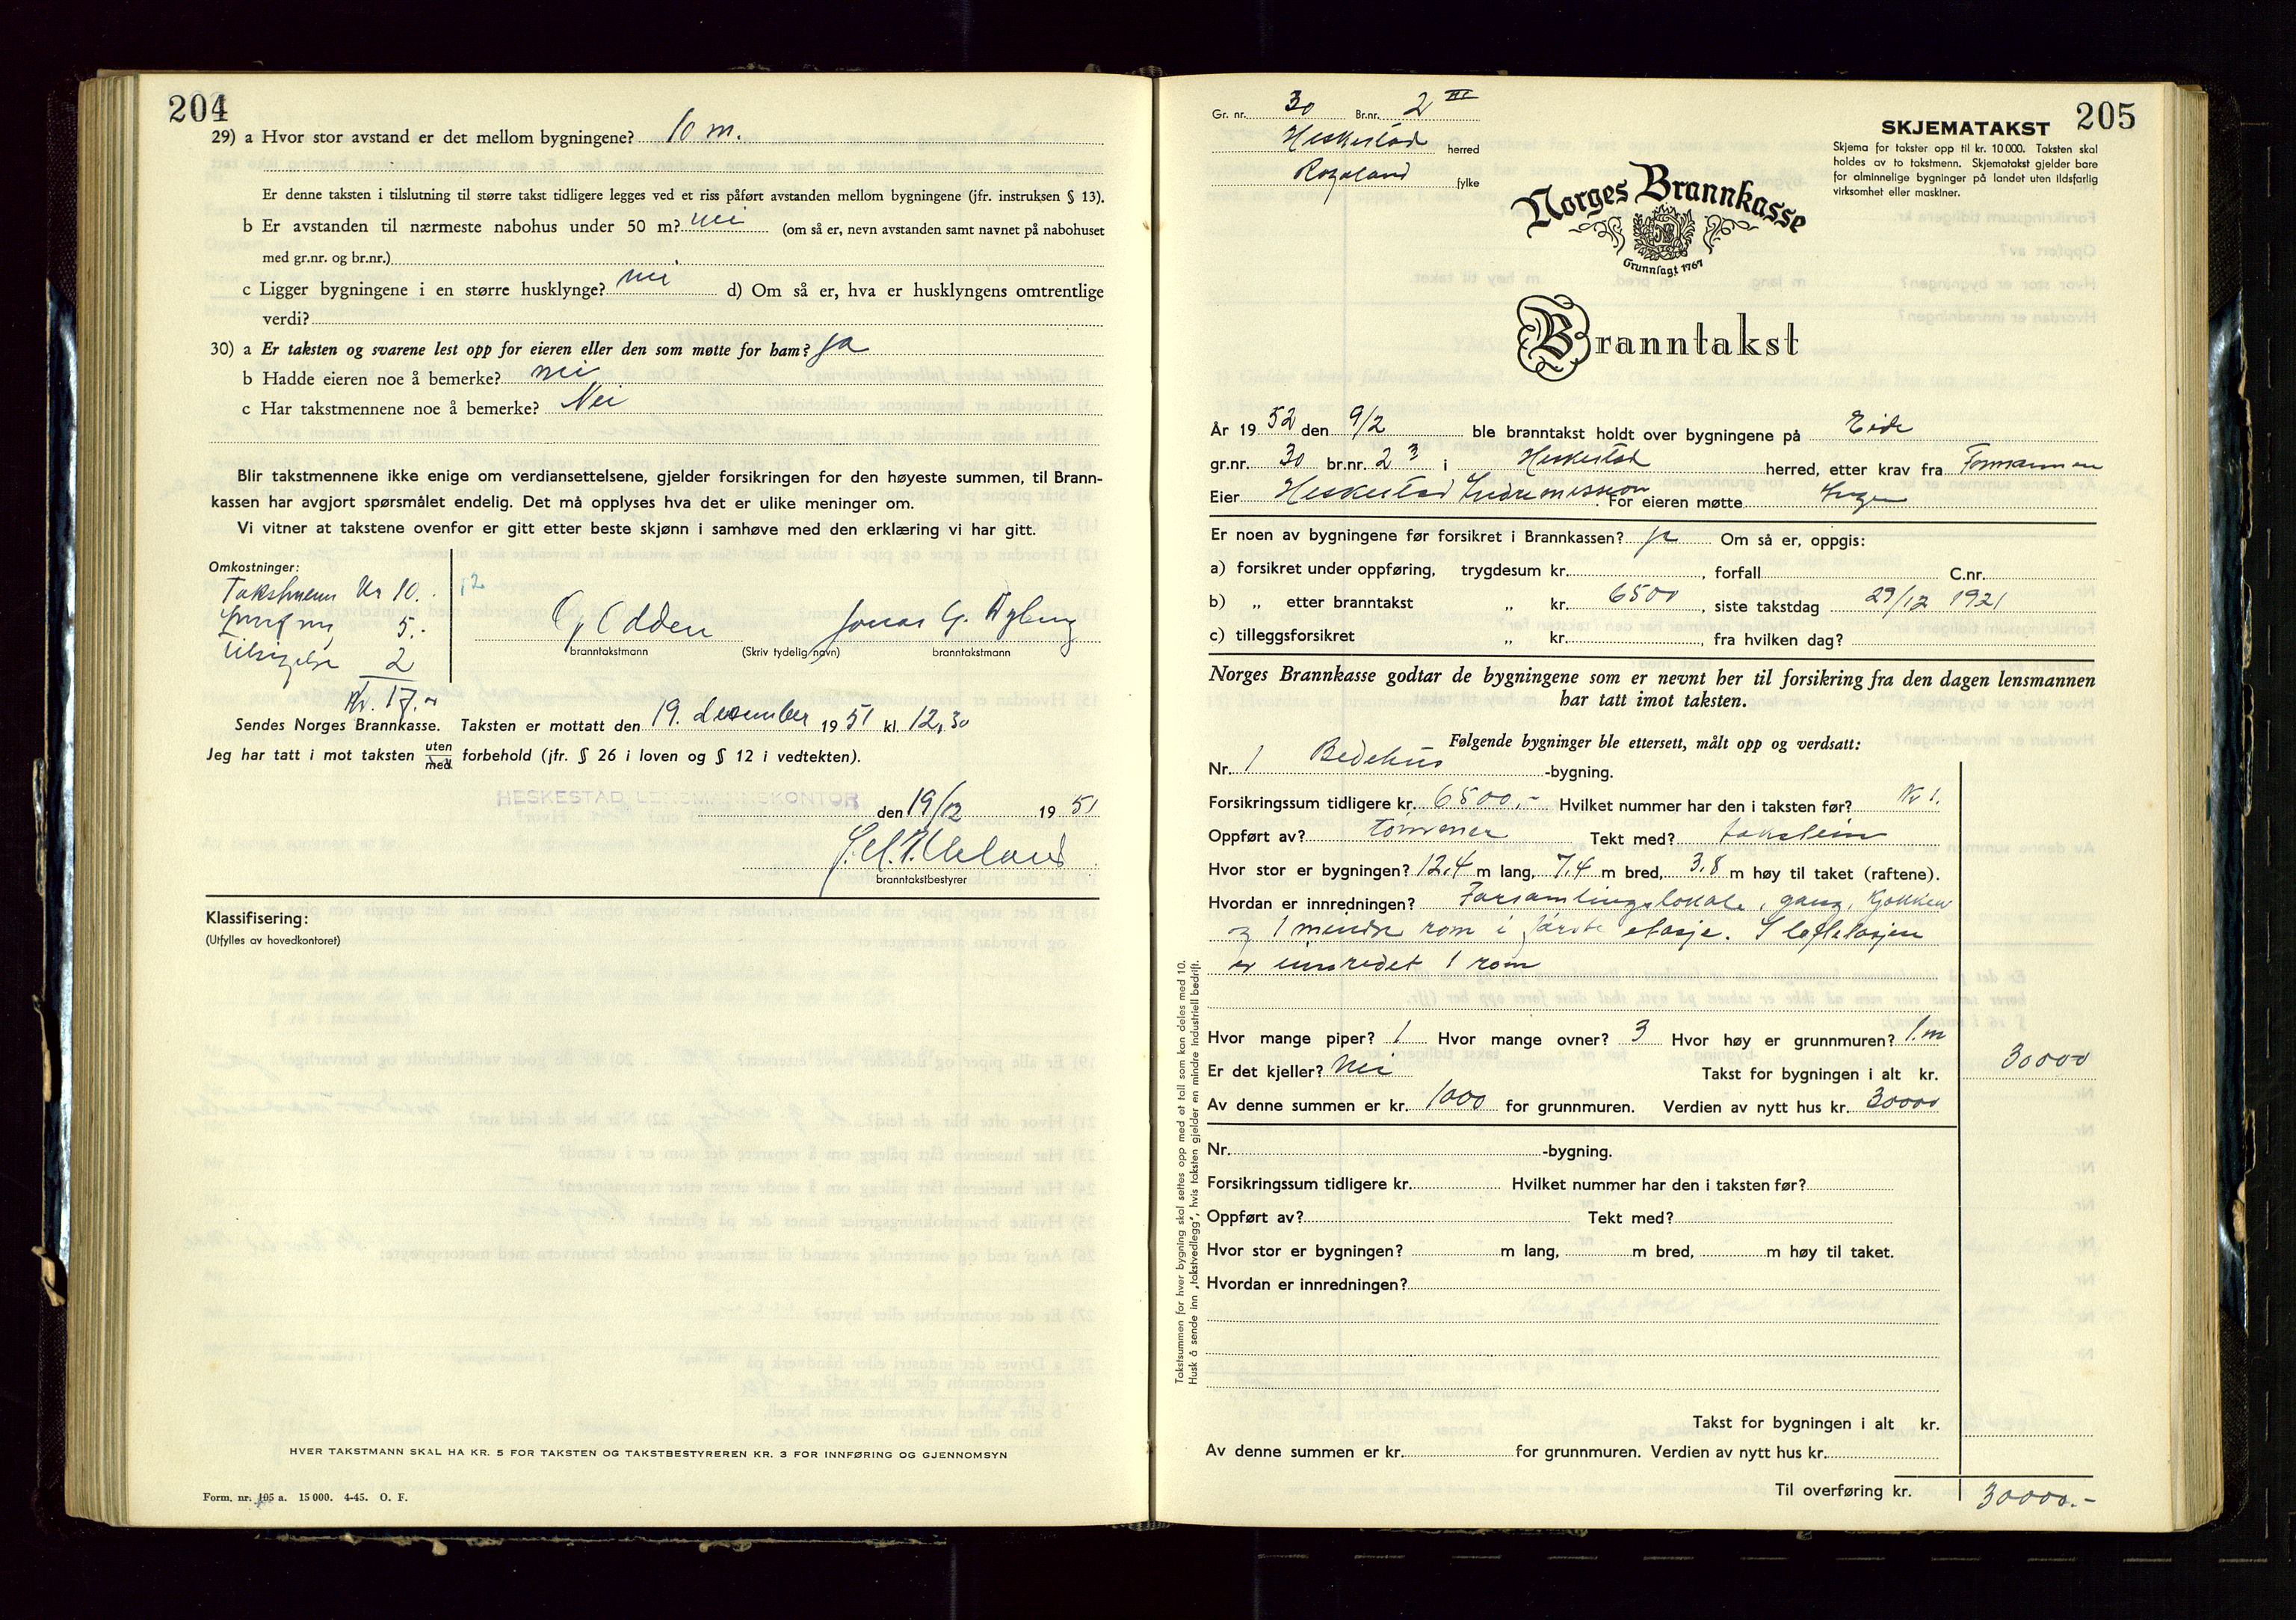 204
29) a Hvor stor avstand er det mellom bygningene? 10 m.
Er denne taksten i tilslutning til større takst tidligere legges ved et riss påført avstanden mellom bygningene (jfr. instruksen § 13).
b Er avstanden til nærmeste nabohus under 50 m? nei (om så er, nevn avstanden samt navnet på nabohuset
med gr.nr. og br.nr.)
c Ligger bygningene i en større husklynge? nei d) Om så er, hva er husklyngens omtrentlige
verdi?
30) a Er taksten og svarene lest opp for eieren eller den som møtte for ham? ja
b Hadde eieren noe å bemerke? nei
c Har takstmennene noe å bemerke? Nei
Blir takstmennene ikke enige om verdiansettelsene, gjelder forsikringen for den høyeste summen, til Brann-
kassen har avgjort spørsmålet endelig. Det må opplyses hva det er ulike meninger om.
Vi vitner at takstene ovenfor er gitt etter beste skjønn i samhøve med den erklæring vi har gitt.
Omkostninger:
Takstmenn Kr 10.
5.
Tilsigelse 2
Kr. 17.-
branntakstmann (Skriv tydelig navn) branntakstmann
Sendes Norges Brannkasse. Taksten er mottatt den 19. desember 1951 kl. 12,30
Jeg har tatt i mot taksten uten/med forbehold (jfr. § 26 i loven og § 12 i vedtekten).
HESKESTAD LENSMANNSKONTOR den 19/12 1951
branntakstbestyrer
Klassifisering:
(Utfylles av hovedkontoret)
HVER TAKSTMANN SKAL HA KR. 5 FOR TAKSTEN OG TAKSTBESTYREREN KR. 3 FOR INNFØRING OG GJENNOMSYN
Form. nr. 105 a. 15 000. 4-45. O. F.
205
Gr. nr. 30 Br.nr. 2 III
Heskestad herred
Rogaland fylke
SKJEMATAKST
Skjema for takster opp til kr. 10 000. Taksten skal
holdes av to takstmenn. Skjematakst gjelder bare
for alminnelige bygninger på landet uten ildsfarlig
virksomhet eller maskiner.
Norges Brannkasse
Grunnlagt 1767
Branntakst
År 1952 den 9/2 ble branntakst holdt over bygningene på Eide
gr.nr. 30 br.nr. 2 3 i Heskestad herred, etter krav fra Formannen
Eier Heskestad Indremisjon For eieren møtte Ingen
Er noen av bygningene før forsikret i Brannkassen? ja Om så er, oppgis:
a) forsikret under oppføring, trygdesum kr. , forfall C.nr.
b) „ etter branntakst „ kr. 6500 , siste takstdag 29/12 1921
c) tilleggsforsikret „ kr. , fra hvilken dag?
Norges Brannkasse godtar de bygningene som er nevnt her til forsikring fra den dagen lensmannen
har tatt imot taksten.
Følgende bygninger ble ettersett, målt opp og verdsatt:
Nr. 1 Bedehus -bygning.
Forsikringssum tidligere kr. 6500,- Hvilket nummer har den i taksten før? Nr 1.
Oppført av? tømmer Tekt med? takstein
Hvor stor er bygningen? 12,4 m lang, 7,4 m bred, 3,8 m høy til taket (raftene).
Hvordan er innredningen? Forsamlingslokale, gang, kjøkken
og 1 mindre rom i første etasje. I loftetasjen
er innredet 1 rom
Hvor mange piper? 1 Hvor mange ovner? 3 Hvor høy er grunnmuren? 1 m
Er det kjeller? Nei Takst for bygningen i alt kr. 30000
Av denne summen er kr. 1000 for grunnmuren. Verdien av nytt hus kr. 30000
Nr. -bygning.
Forsikringssum tidligere kr. Hvilket nummer har den i taksten før?
Oppført av? Tekt med?
Hvor stor er bygningen? m lang, m bred, m høy til taket.
Hvordan er innredningen?
Takst for bygningen i alt kr.
Av denne summen er kr. for grunnmuren. Verdien av nytt hus kr.
Til overføring kr. 30000.-
Takstsummen for hver bygning skal settes opp med et tall som kan deles med 10.
Husk å sende inn „takstvedlegg", hvis taksten gjelder en mindre industriell bedrift.